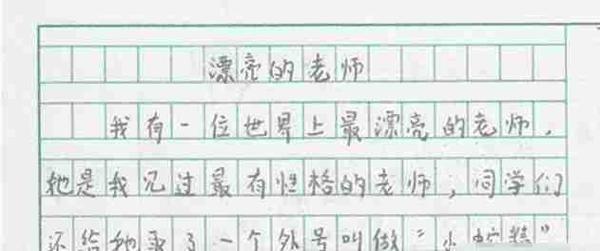 漂亮的老师
我有一位世界上最漂亮的老师，
她是我见过最有性格的老师，同学们
还给她取了一个外号叫做“小